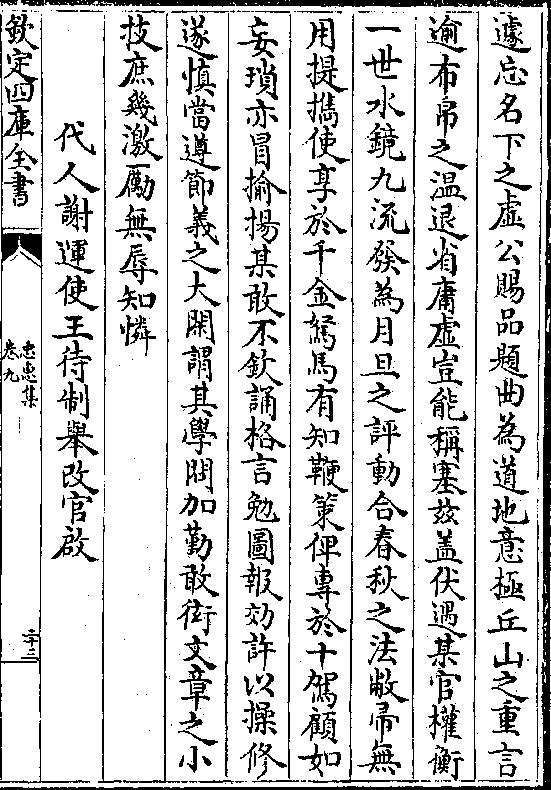 遽忘名下之虛公賜品題曲為道地意極丘山之重言
逾布帛之温退省庸虛豈能稱塞兹盖伏遇某官權衡
一世水鏡九流發為月旦之評動合春秋之法敝帚無
用提攜使享於千金駑馬有知鞭策俾專於十駕顧如
妄瑣亦冒揄揚某敢不欽誦格言勉圖報効許以操修
遂慎當遵節義之大閑謂其學問加勤敢衒文章之小
技庶幾激勵無辱知憐
代人謝運使王待制舉改官啟
欽定四庫全書
忠惠集
卷九
二十三